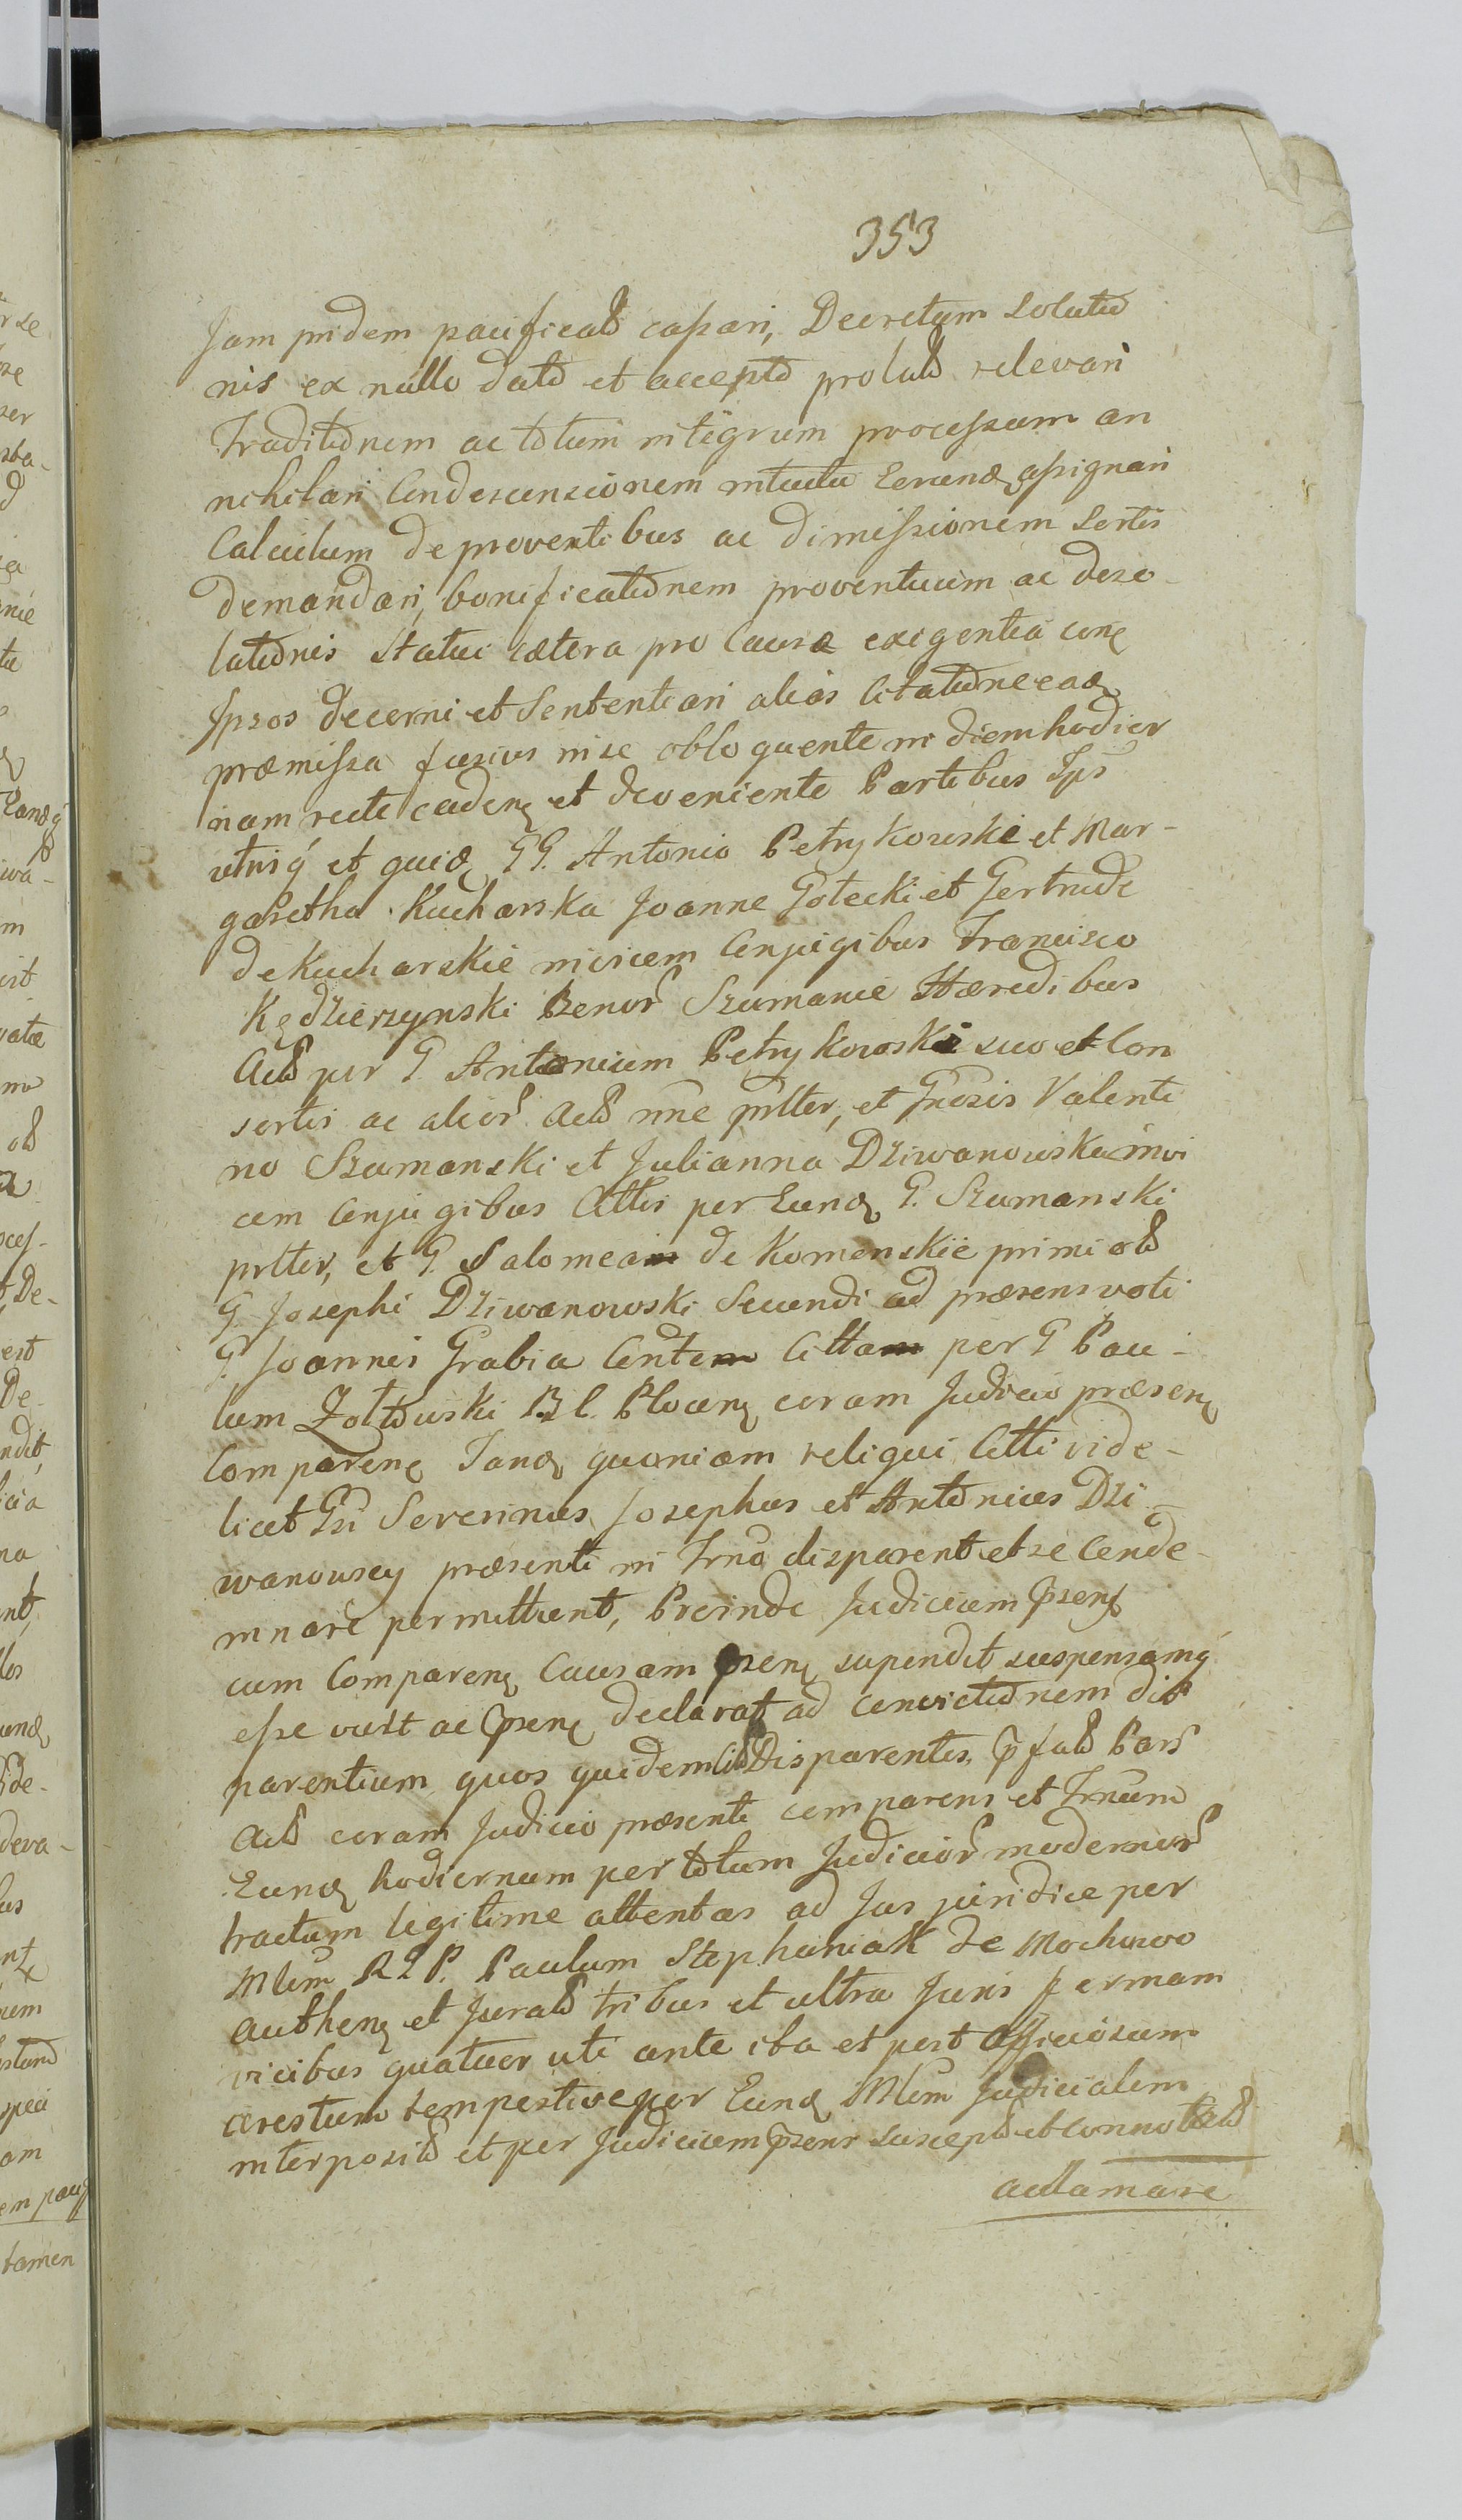 353
Jam pridem pacificatt cassari, Decretum Solutio
nis ex nullo dato et accepto prolatt relevari
Traditionem ac totum integrum processum an
nihilari Condescensionem intuitu Eerund assignari
Calculum de proventibus ac dimissionem Sortis
demandari, bonificationem proventuum ac deso-
lationis Statui cætera pro Causæ exigentia conc
Ipsos decerni et Sententiari alias Citatione ead
præmissa fusius in se obloquente in diem hodier
nam recte caden et deveniente Partibus Ips
utrisq et quid GG. Antonio Petrykowski et Mar-
garetha Kucharska Joanne Golecki et Gertrude
de Kucharskie invicem Conjugibus Francisco
Kędzierzynski Bonor Szumanie Hæredibus
Actt per G. Antonium Petrykowski suo et Con
sortis ac alior Actt nne prltter, et Grosis Valenti
no Szumanski et Julianna Dziwanowska invi
cem Conjugibus Cittis per Eund G. Szumanski
prltter, et G. Salomea de Komenskie primi ott
G. Josephi Dziwanowski Secundi ad præsens voti
G. Joannis Grabia Conte Citta per G Pau-
lum Zołtowski B. C. Plocen coram Judicio præsen
Comparen Tand quoniam reliqui Citti vide-
licet Gsi Severinus Josephus et Antonius Dzi-
wanowscy præsenti in Trno disparent et se Conde-
mnare permittunt, Proinde Judicium Prsens
cum Comparen Causam prsen supendit suspensamq
esse vult ac Prsen declarat ad convictionem dis
parentium quos quidem Citt Disparentes, Prfatt Pars
Actt coram Judicio præsenti comparens et Trnum
Eund hodiernum per totum Judicior modernor
tractum legitime attentas ad Jus juridice per
Mlem RLP. Paulum Stephaniak de Mochowo
authen et Juratt tribus et ultra Juris formam
vicibus quatuor uti ante ita et post Officiosum
arestum tempestive per Eund Mlem Judicialem
interpositt et per Judicium Prsens suscept et connotatt
acclamare